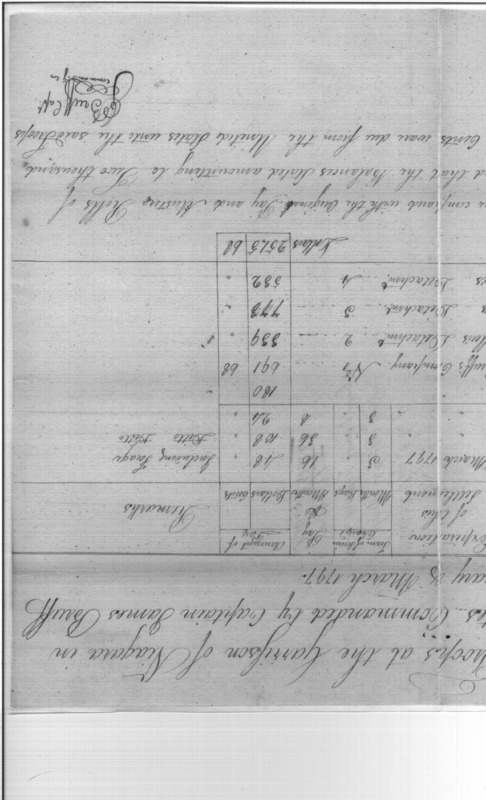 Troops at the Garrison of Niagara in
Commanded by Captain James Bruff
& March 1797.
Expiration of this Settlement | Term of Charge Months Days | Pay Months | Amount of Pay Dollars Cents | Remarks
March 1797 | 3 " | 16 | 48 " | Including Forage
" | 3 " | 36 | 108 " | Ditto Ditto
" | 3 " | 8 | 24 "
180 "
Bruff's Company No. 1 691 68
Detachmt. 2 339 "
Detachmt. 3 773 "
Detachmt. 4 532 "
Dollars 2515 68
compared with the Original Pay and Muster Rolls of
that the Balances Stated amounting to Two thousand
Cents were due from the United States unto the said Troops
J Bruff Capt.
Commandg.